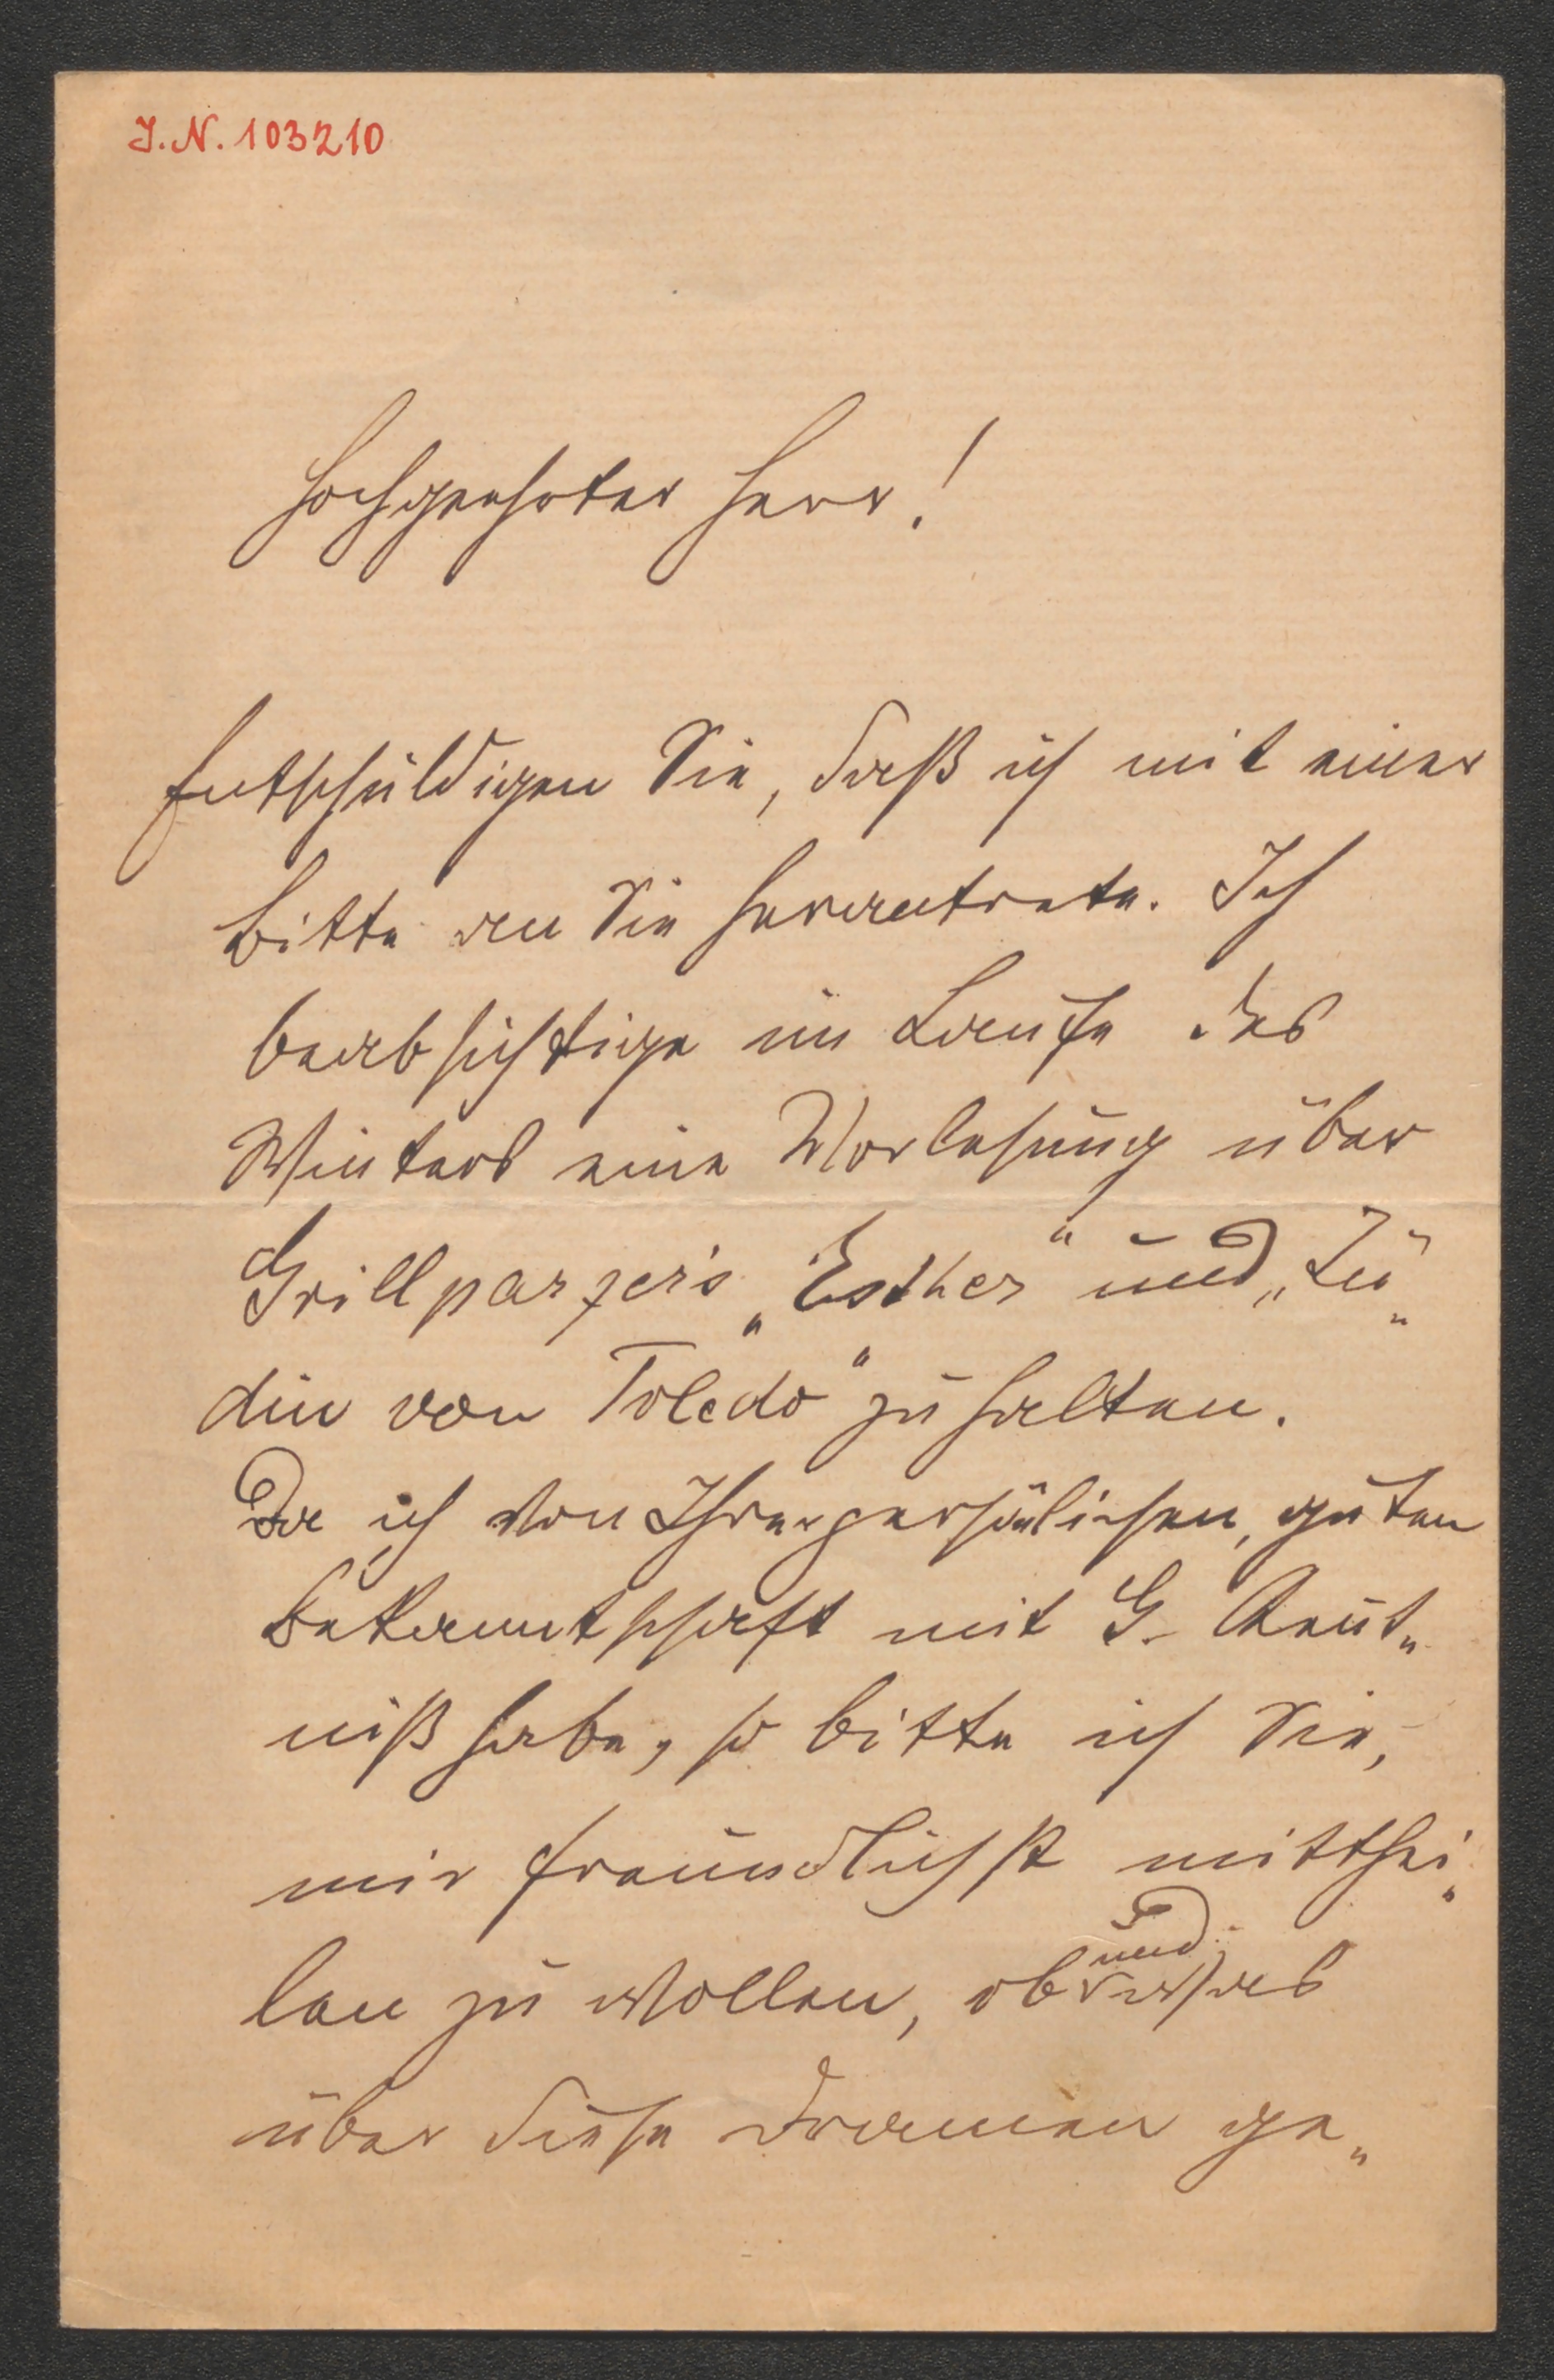 I.N. 103210
Hochgeehrter Herr!
Entschuldigen Sie, daß ich mit einer
Bitte an Sie herantrete. Ich
beabsichtige im Laufe des
Winters eine Vorlesung über
Grillparzer's „Esther“ und „Jü„
din von Toledo“ zu halten.
Da ich von Ihrer persönlichen, guten
Bekanntschaft mit G. Kent„
niß habe, so bitte ich Sie,
mir freundlichst mitthei„
len zu wollen, ob und was
über diese Dramen ge„